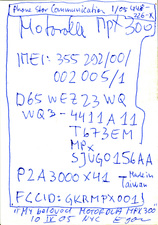 Phone Star Communication
Motorola MPX 300
IMEI: 355 292/00/
002005/1
D65 WEZ23 WQ
WQ3-4411A11
T673EM
MPx
SJUG0156AA
P2A3000X41 Made in
Taiwan
FCCID: GKRMPX001!
"My beloved MOTOROLA MPX300"
10 IV 05 NYC